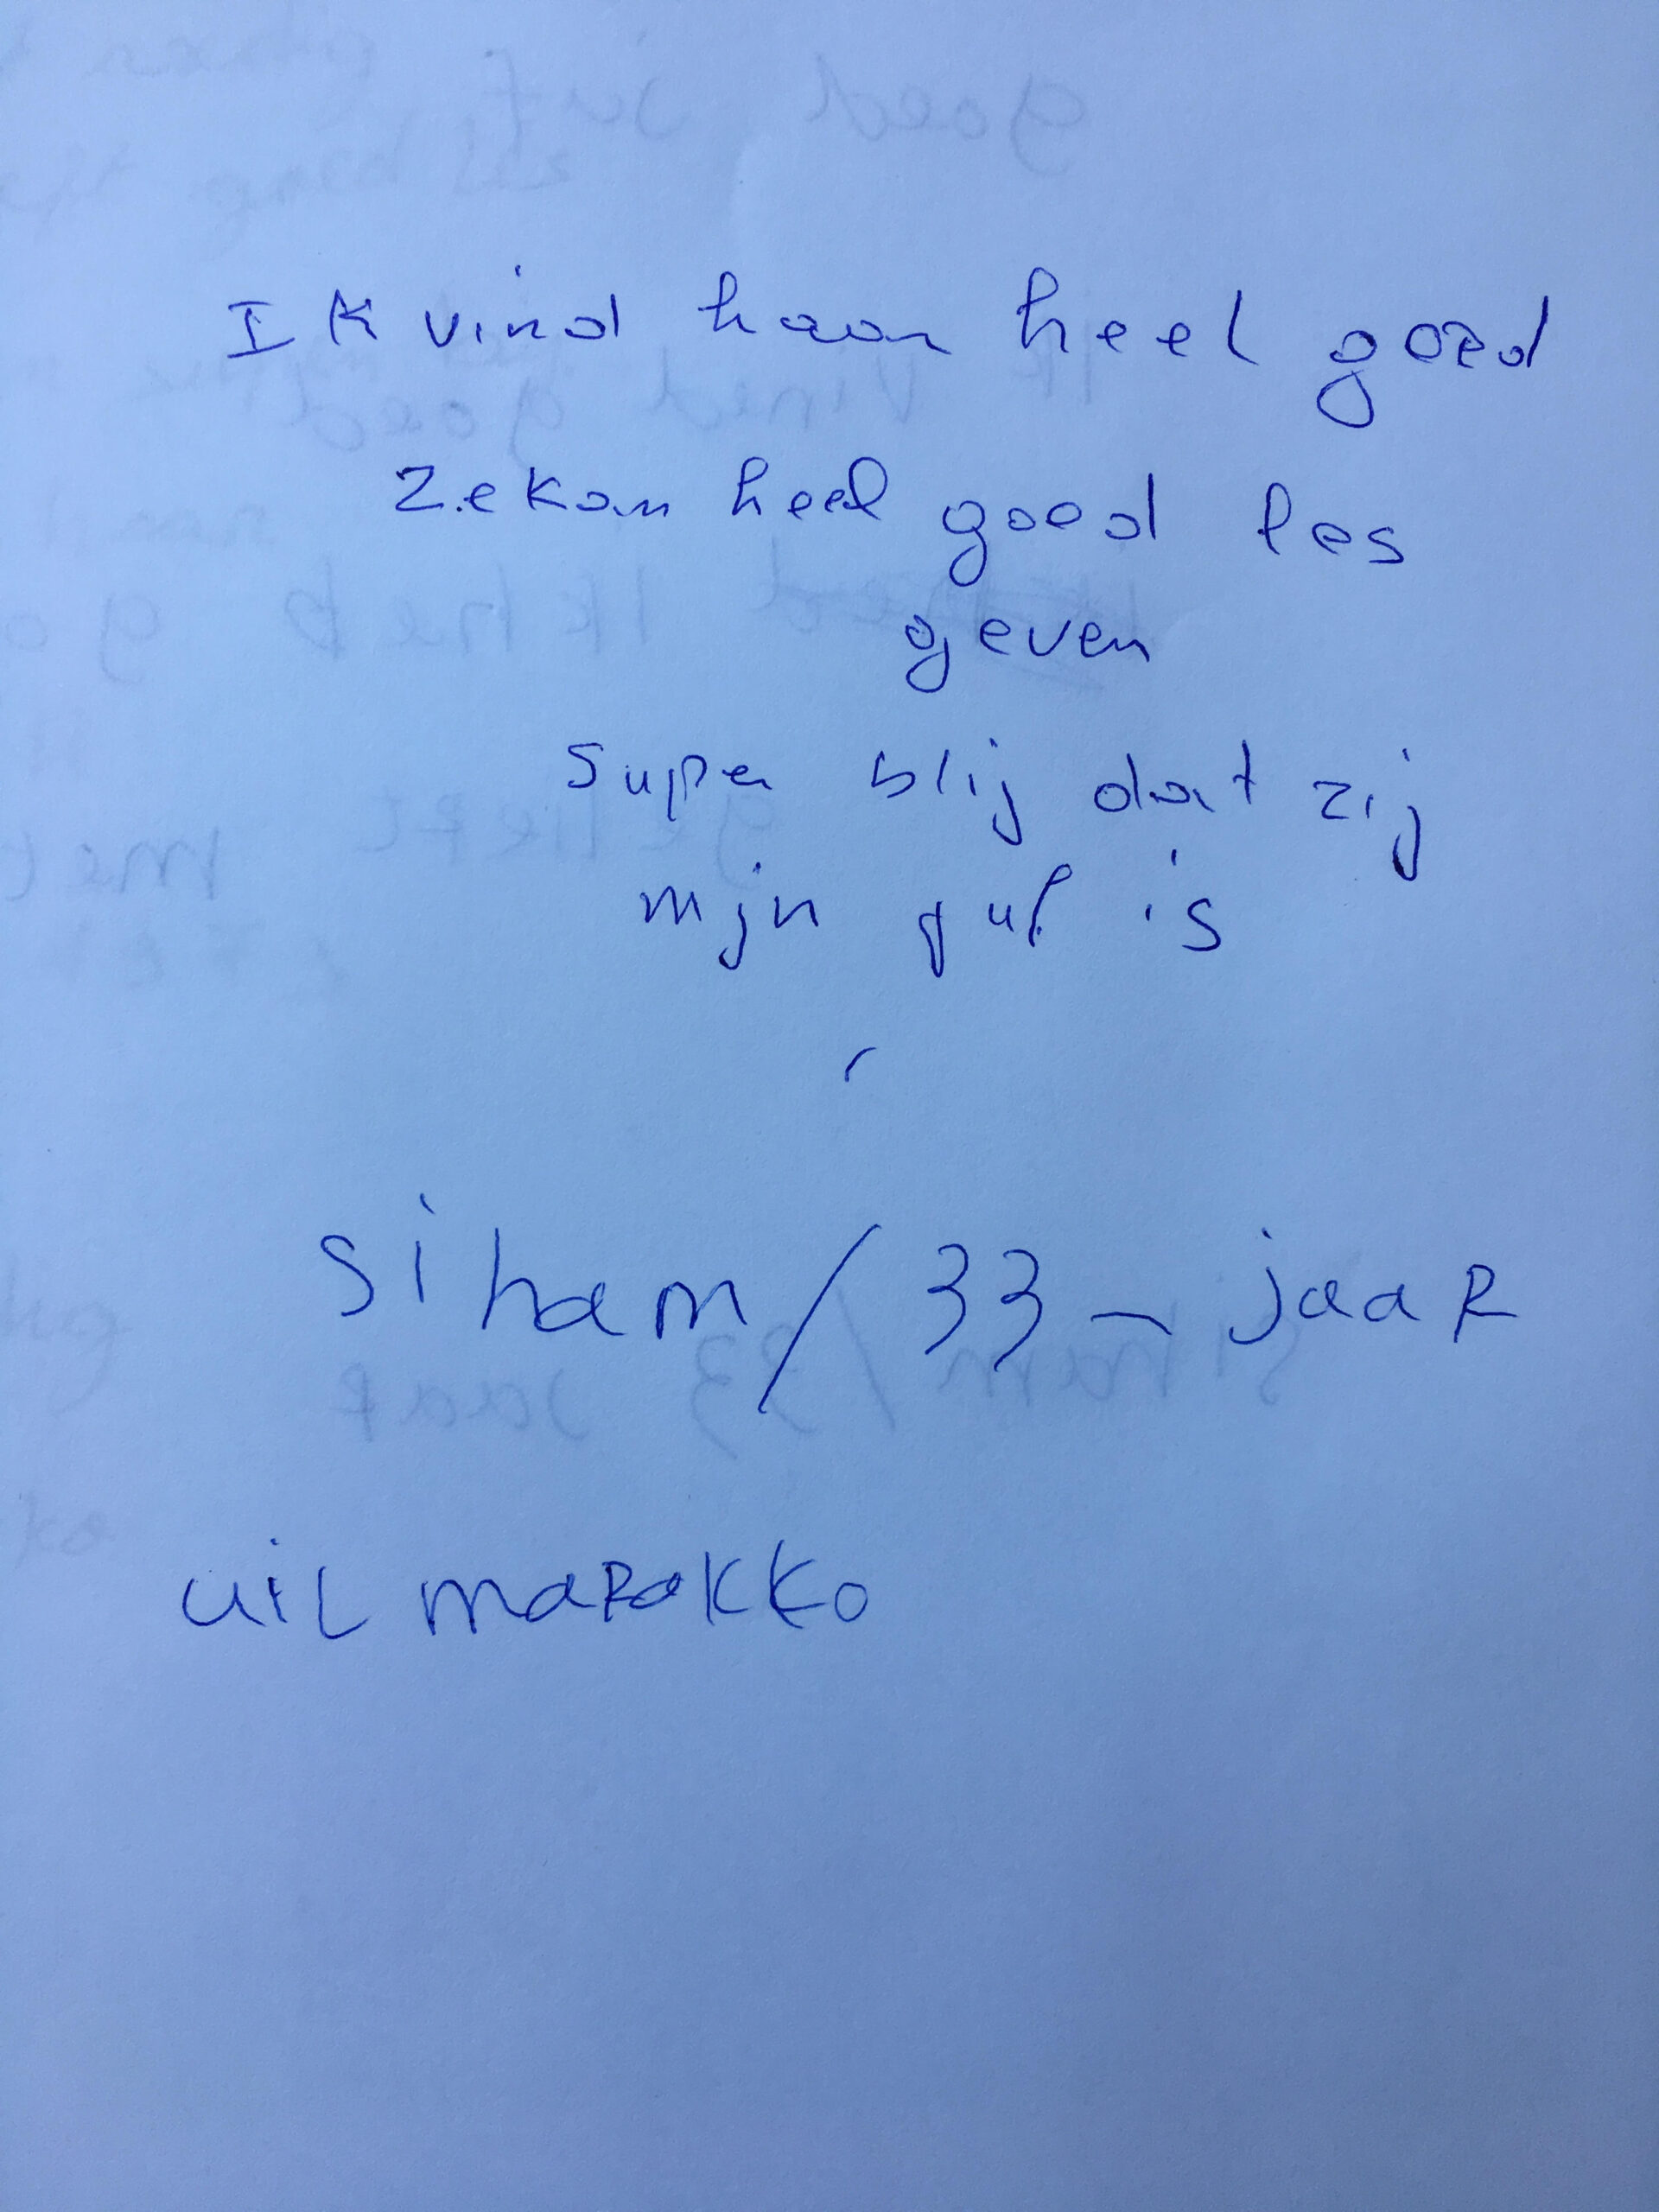 Ik vind haar heel goed
Ze kan heel goed les
geven
Super blij dat zij
mijn juf is
Siham / 33 - jaar
uit marokko